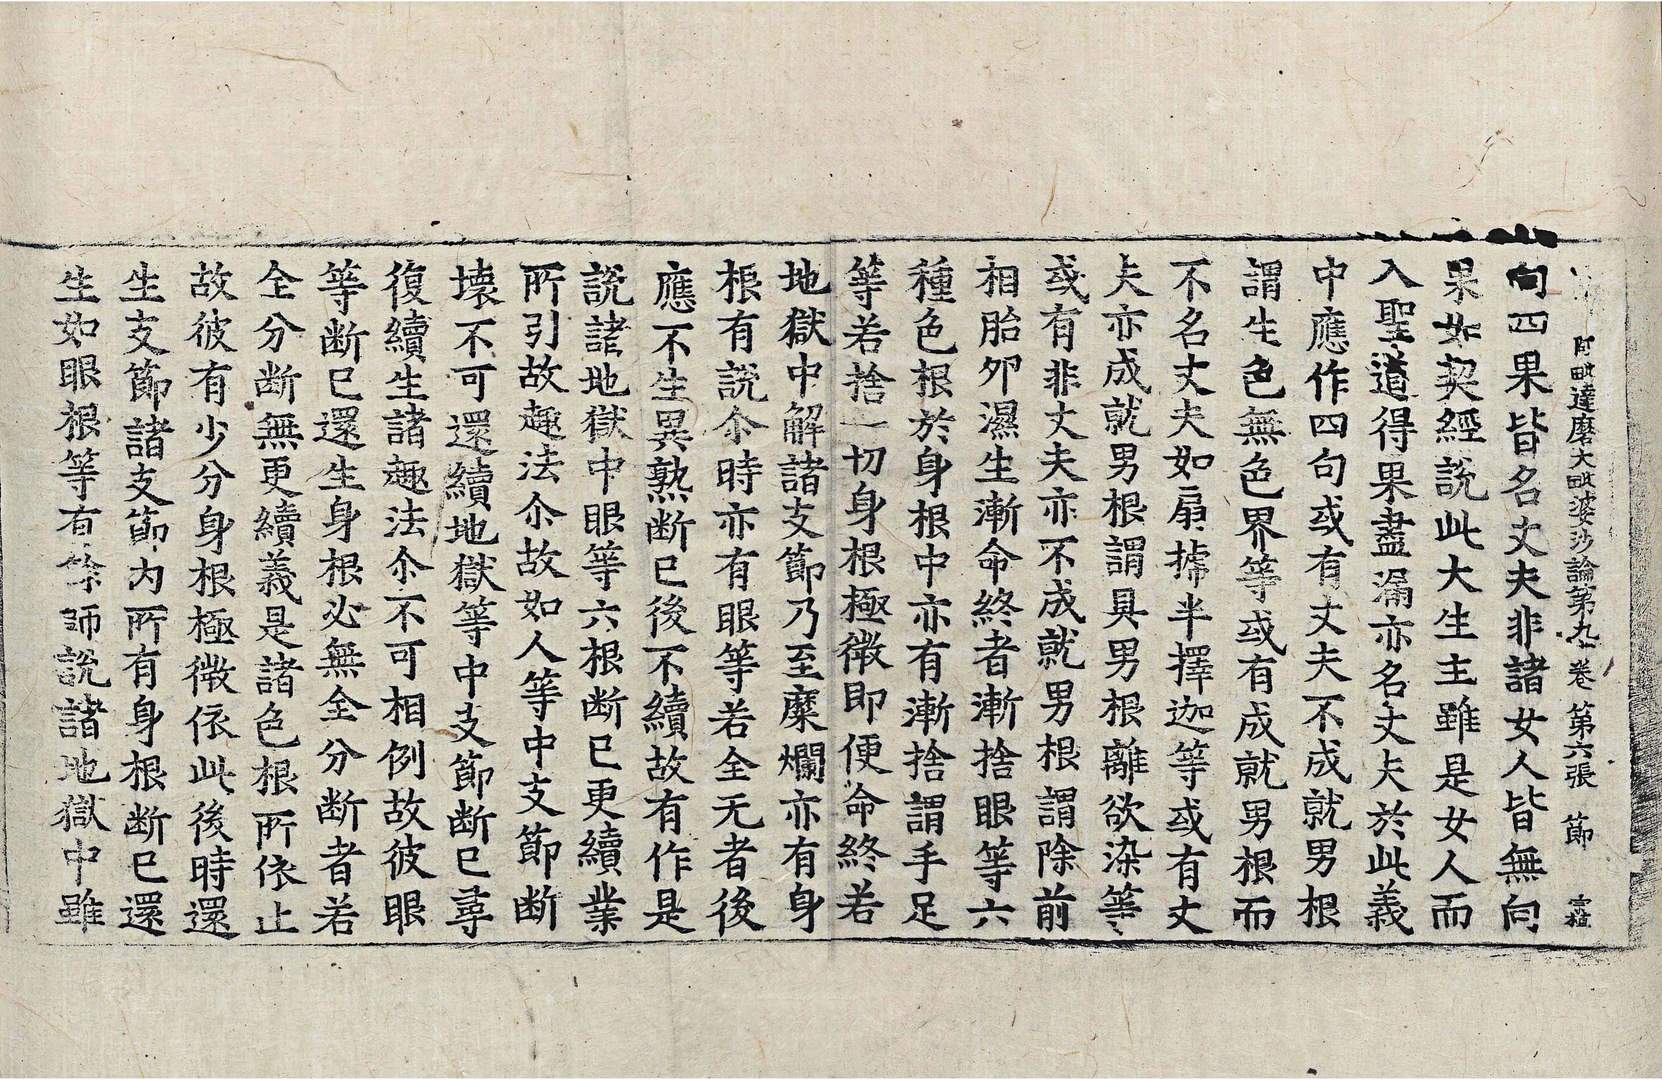 阿毗達磨大毗婆沙論第九卷 第六張 節
向四果皆名丈夫非諸女人皆無向
果如契經說此大生主雖是女人而
入聖道得果盡漏亦名丈夫於此義
中應作四句或有丈夫不成就男根
謂生色無色界等或有成就男根而
不名丈夫如扇搋半擇迦等或有丈
夫亦成就男根謂具男根離欲染等
或有非丈夫亦不成就男根謂除前
相胎卵濕生漸命終者漸捨眼等六
種色根於身根中亦有漸捨謂手足
等若捨一切身根極微即便命終若
地獄中解諸支節乃至糜爛亦有身
根有說尒時亦有眼等若全无者後
應不生異熟断已後不續故有作是
說諸地獄中眼等六根断已更續業
所引故趣法尒故如人等中支節断
壞不可還續地獄等中支節断已尋
復續生諸趣法尒不可相例故彼眼
等断已還生身根必無全分断者若
全分断無更續義是諸色根所依止
故彼有少分身根極微依此後時還
生支節諸支節内所有身根断已還
生如眼根等有餘師說諸地獄中雖